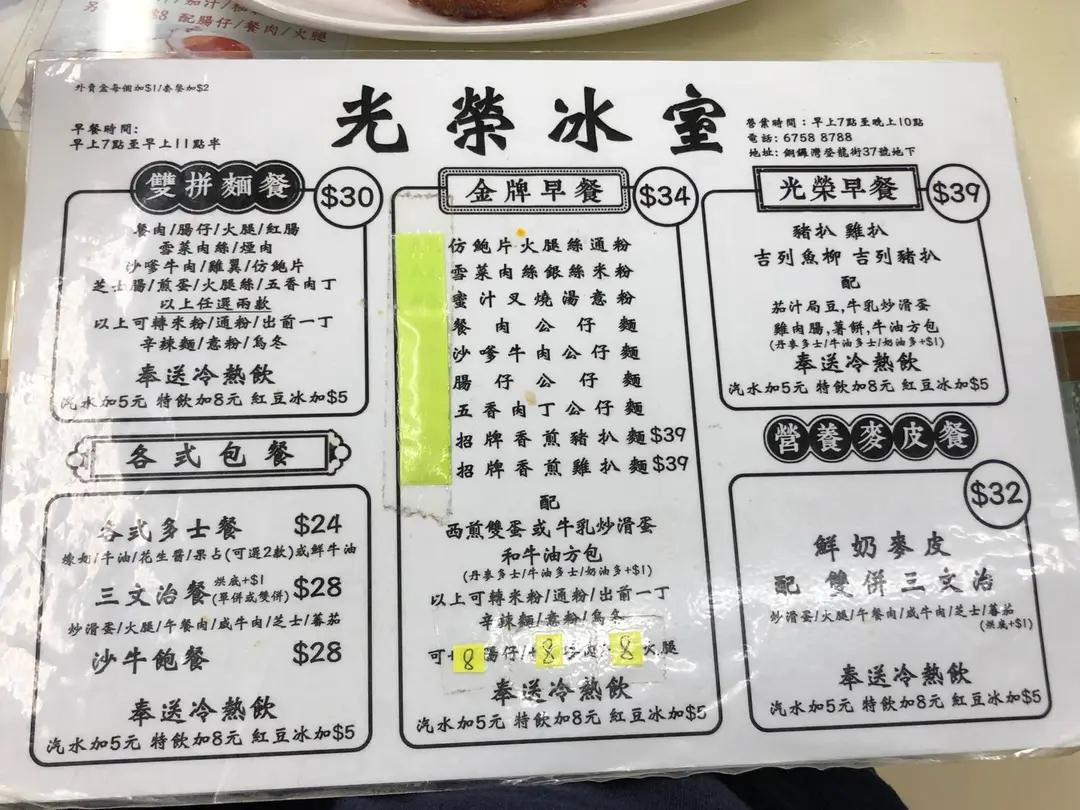 $8 配腸仔/餐肉/火腿
外賣盒每個加$1/套餐加$2
早餐時間:
早上7點至早上11點半
光榮冰室
營業時間：早上7點至晚上10點
電話: 6758 8788
地址: 銅鑼灣登龍街37號地下
雙拼麵餐 $30
餐肉/腸仔/火腿/紅腸
雪菜肉絲/煙肉
沙嗲牛肉/雞翼/仿鮑片
芝士腸/煎蛋/火腿絲/五香肉丁
以上任選兩款
以上可轉米粉/通粉/出前一丁
辛辣麵/意粉/烏冬
奉送冷熱飲
汽水加5元 特飲加8元 紅豆冰加$5
各式包餐
各式多士餐 $24
煉奶/牛油/花生醬/果占(可選2款)或鮮牛油
三文治餐 烘底+$1 (單併或雙併) $28
炒滑蛋/火腿/午餐肉/咸牛肉/芝士/蕃茄
沙牛飽餐 $28
奉送冷熱飲
汽水加5元 特飲加8元 紅豆冰加$5
金牌早餐 $34
仿鮑片火腿絲通粉
雪菜肉絲銀絲米粉
蜜汁叉燒湯意粉
餐肉公仔麵
沙嗲牛肉公仔麵
腸仔公仔麵
五香肉丁公仔麵
招牌香煎豬扒麵$39
招牌香煎雞扒麵$39
配
西煎雙蛋或牛乳炒滑蛋
和牛油方包
(丹麥多士/牛油多士/奶油多+$1)
以上可轉米粉/通粉/出前一丁
辛辣麵/意粉/烏冬
可 8 腸仔/ 8 8 火腿
奉送冷熱飲
汽水加5元 特飲加8元 紅豆冰加$5
光榮早餐 $39
豬扒 雞扒
吉列魚柳 吉列豬扒
配
茄汁焗豆,牛乳炒滑蛋
雞肉腸,薯餅,牛油方包
(丹麥多士/牛油多士/奶油多+$1)
奉送冷熱飲
汽水加5元 特飲加8元 紅豆冰加$5
營養麥皮餐
$32
鮮奶麥皮
配 雙併三文治
炒滑蛋/火腿/午餐肉/咸牛肉/芝士/蕃茄
(烘底+$1)
奉送冷熱飲
汽水加5元 特飲加8元 紅豆冰加$5